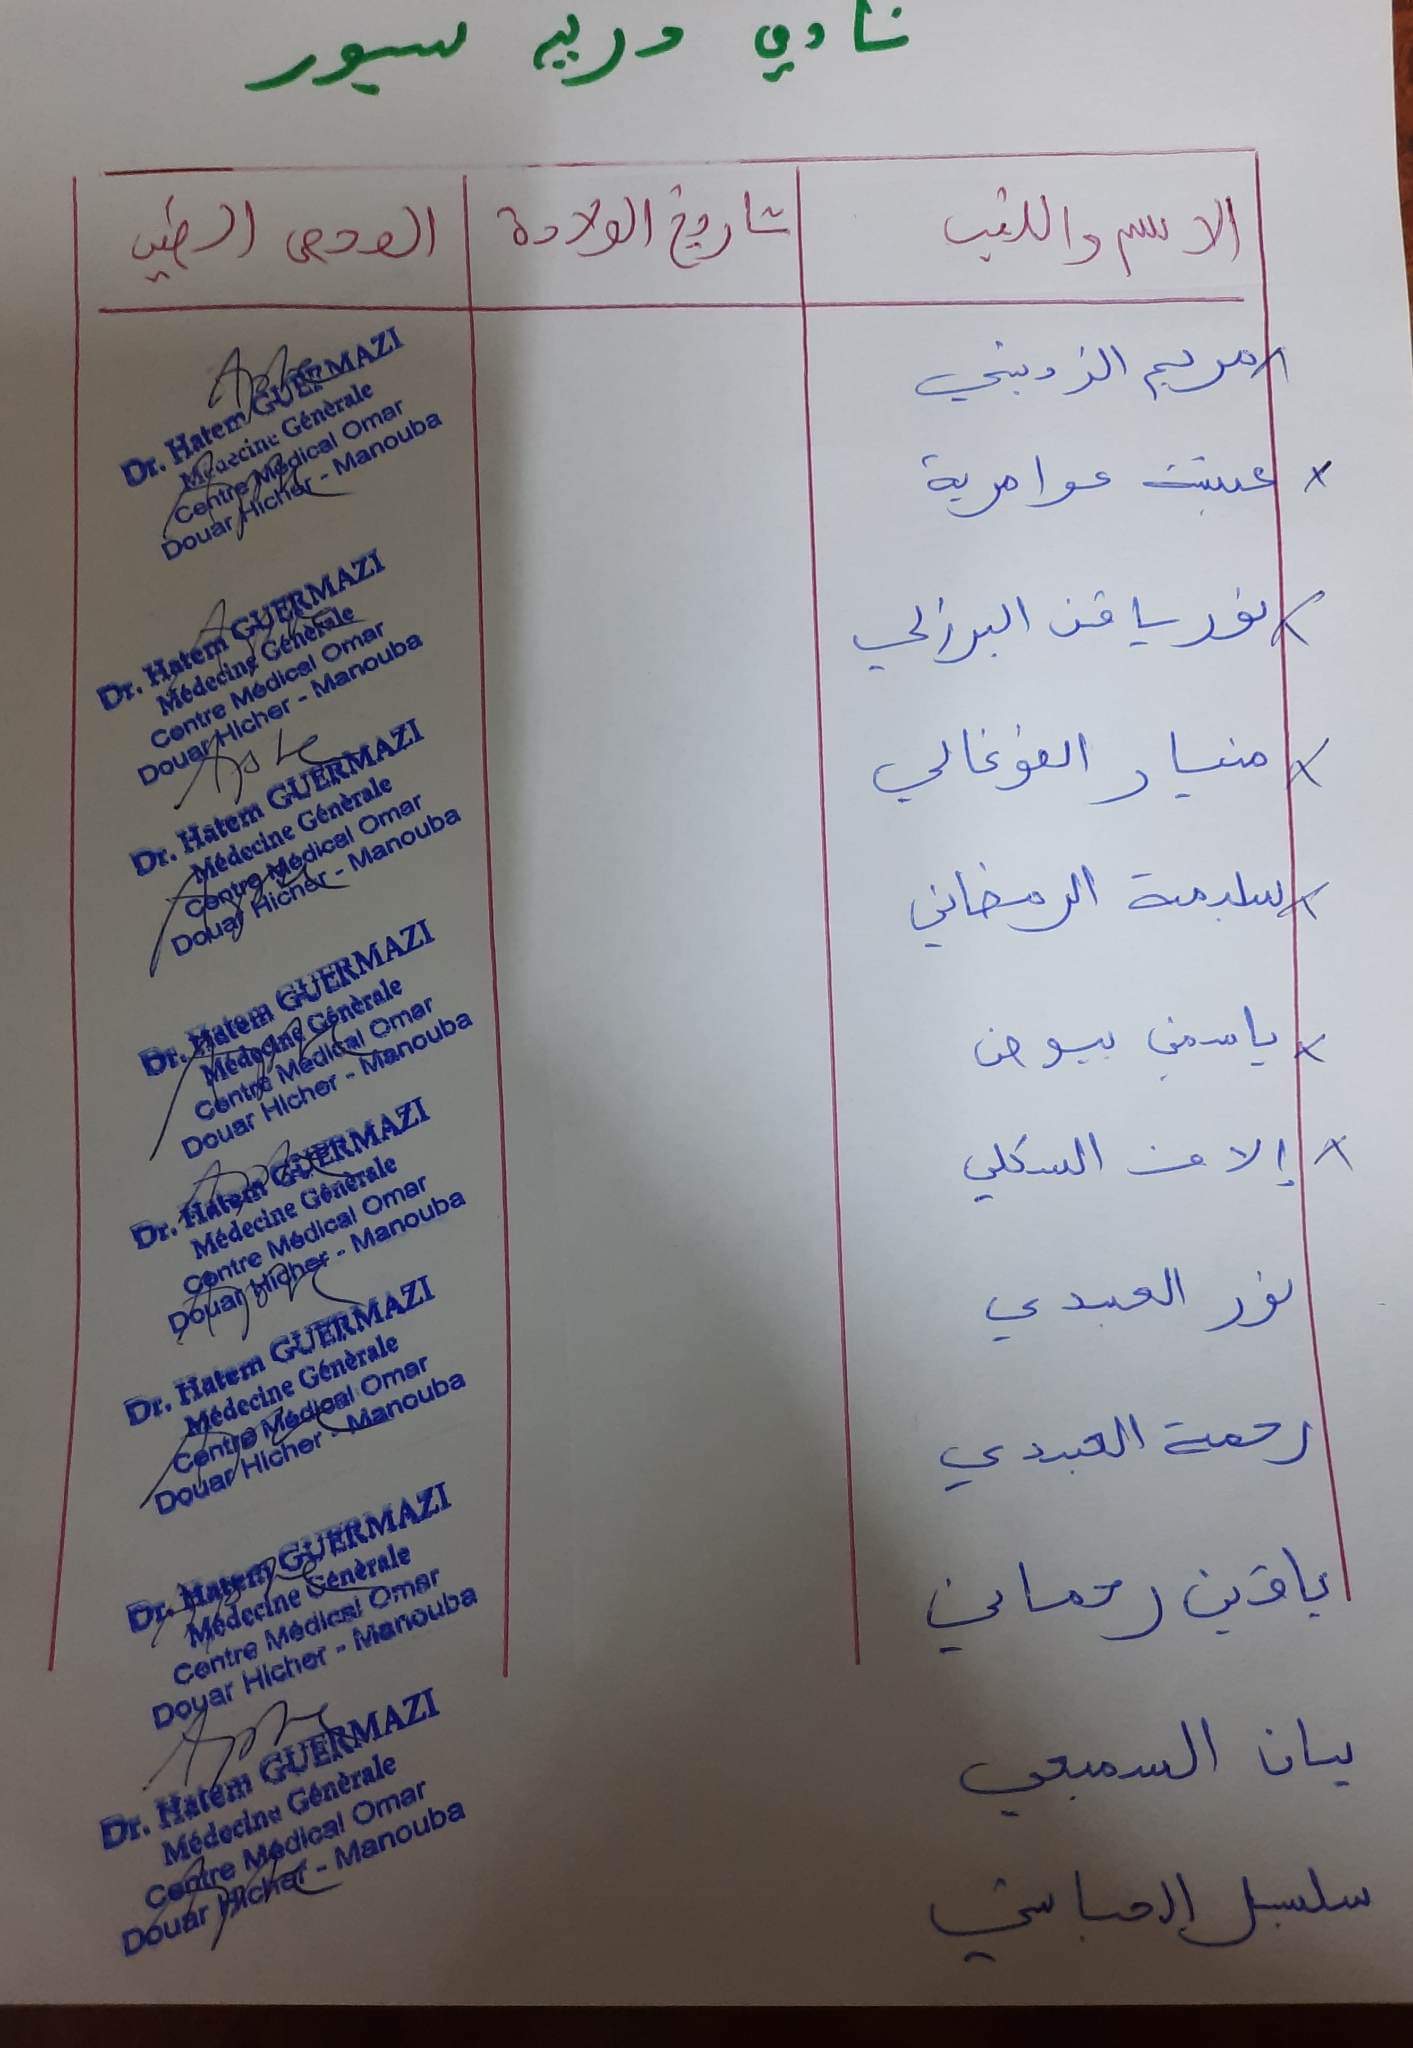 نادي دريم سبور
الاسم واللقب
تاريخ الولادة
الفحص الطبي
مريم الزديني
عوامرية
نور البرزلي
منيار الفوغالي
سليمة الرمضاني
ياسمين
إلاف السكلي
نور العبيدي
رحمة العبيدي
رحماني
بيان السميعي
سلسبيل العباسي
Dr. Hatem GUERMAZI
Médecine Générale
Centre Médical Omar
Douar Hicher - Manouba
Dr. Hatem GUERMAZI
Médecine Générale
Centre Médical Omar
Douar Hicher - Manouba
Dr. Hatem GUERMAZI
Médecine Générale
Centre Médical Omar
Douar Hicher - Manouba
Dr. Hatem GUERMAZI
Médecine Générale
Centre Médical Omar
Douar Hicher - Manouba
Dr. Hatem GUERMAZI
Médecine Générale
Centre Médical Omar
Douar Hicher - Manouba
Dr. Hatem GUERMAZI
Médecine Générale
Centre Médical Omar
Douar Hicher - Manouba
Dr. Hatem GUERMAZI
Médecine Générale
Centre Médical Omar
Douar Hicher - Manouba
Dr. Hatem GUERMAZI
Médecine Générale
Centre Médical Omar
Douar Hicher - Manouba